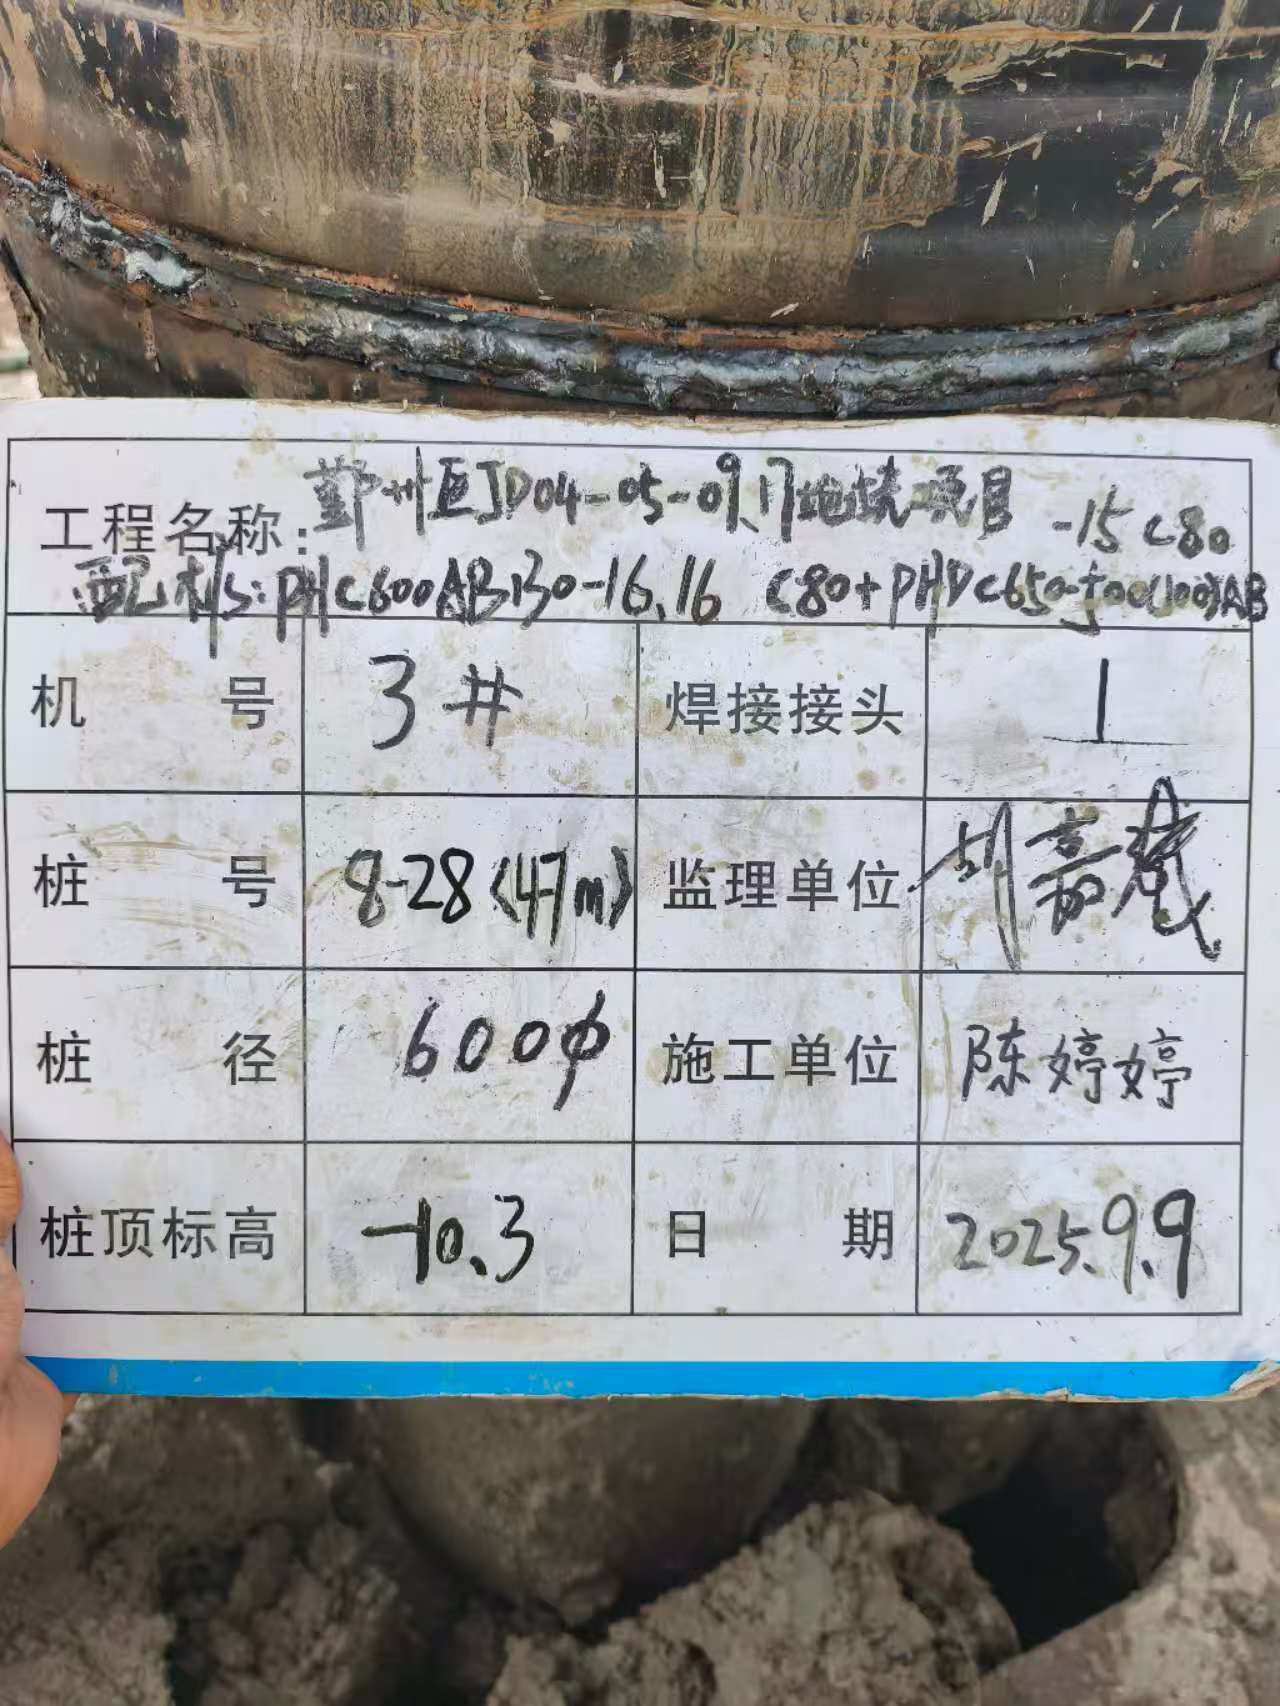 工程名称: 鄞州区JD04-05-09.17地块项目 -15 C80
配桩: PHC600AB130-16.16 C80+PHDC650-500(100)AB
机号 3# 焊接接头 1
桩号 8-28(47m) 监理单位 胡嘉
桩径 600ф 施工单位 陈婷婷
桩顶标高 -10.3 日期 2025.9.9